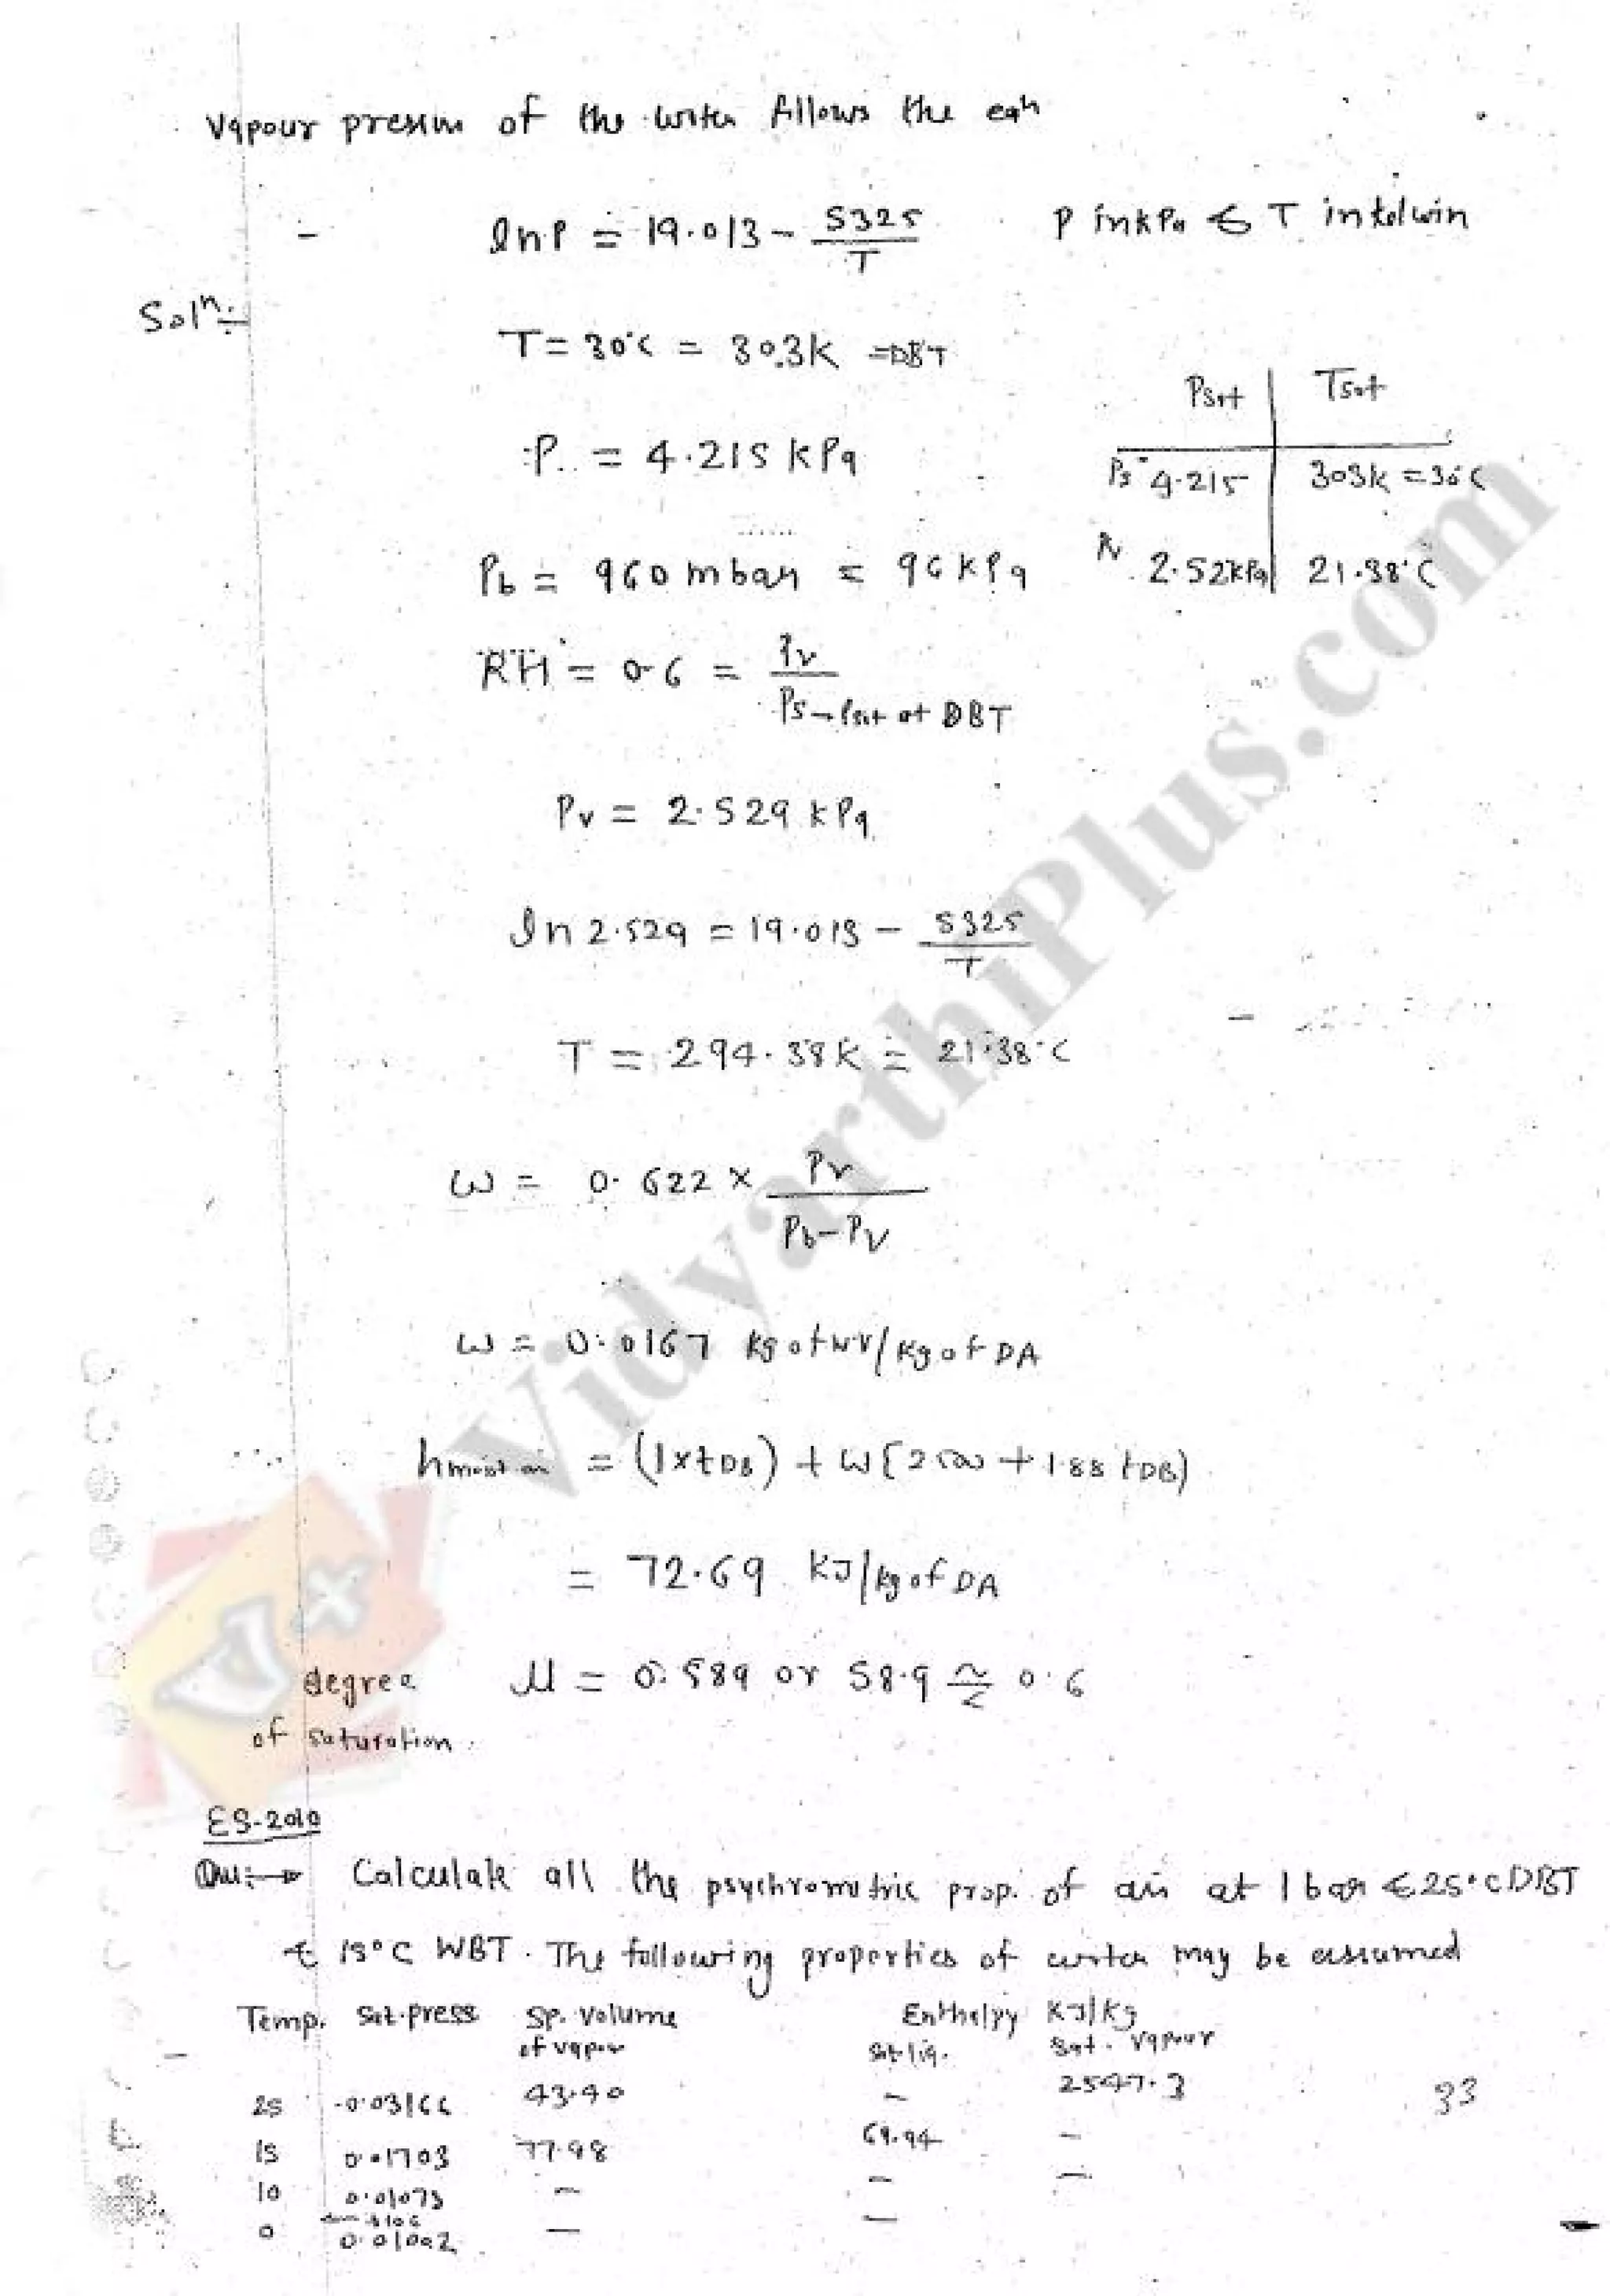 Vapour pressure of the water follows the eqn
ln P = 19.013 - 5325/T    P in kPa & T in kelvin
Soln:-
T = 30°C = 303K = DBT
P = 4.215 kPa
Psat | Tsat
Ps 4.215 | 303K = 30°C
Pv 2.52kPa | 21.38°C
Pb = 960 mbar = 96 kPa
RH = 0.6 = Pv / Ps → Psat at DBT
Pv = 2.529 kPa
ln 2.529 = 19.013 - 5325/T
T = 294.38K = 21.38°C
ω = 0.622 × Pv / Pb-Pv
ω = 0.0167 kg of WV/kg of DA
h moist air = (1×tDB) + ω(2500 + 1.88 tDB)
= 72.69 KJ/kg of DA
degree of saturation.
μ = 0.589 or 58.9 ≃ 0.6
ES-2010
Qu:→ Calculate all the psychrometric prop. of air at 1 bar & 25°C DBT
& 15°C WBT. The following properties of water may be assumed
Temp. Sat.press Sp. Volume of vapour Enthalpy KJ/Kg
sat liq. sat. vapour
25 0.03166 43.40 — 2547.3
15 0.01703 77.98 62.94 —
10 0.01073 — — —
0 0.01002 — —
33
VidyarthiPlus.com
V+